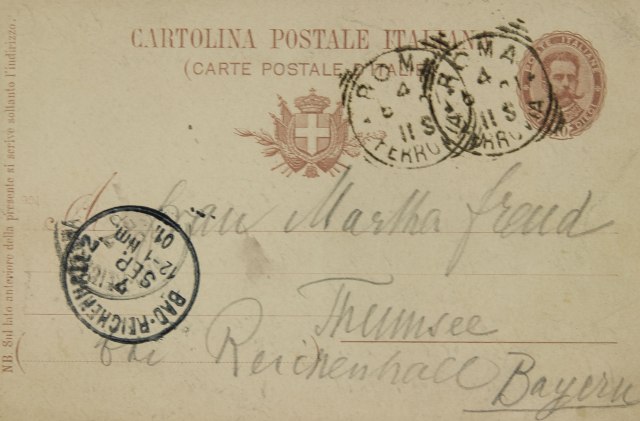 CARTOLINA POSTALE ITALIANA
(CARTE POSTALE D'ITALIE)
POSTE ITALIANE
DIECI
ROMA
11 S
FERROVIA
ROMA
11 S
FERROVIA
Frau Martha Freud
Thumsee
bei Reichenhall
Bayern
BAD-REICHENHALL
7 SEP.
12-1 Nm.
01.
NB. Sul lato anteriore della presente si scrive soltanto l'indirizzo.